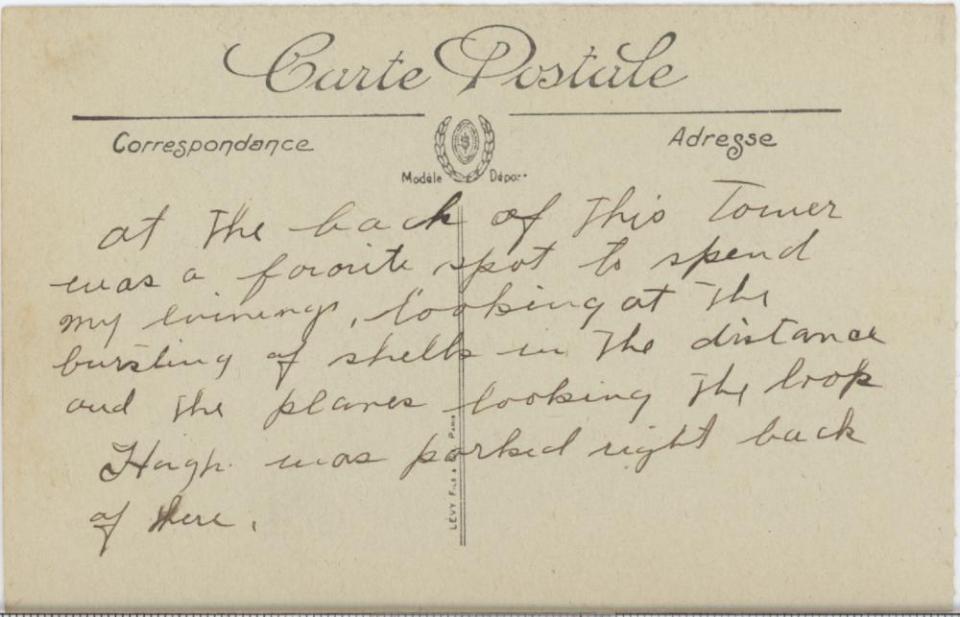 Carte Postale
Correspondance
Adresse
Modèle Dépo..
at the back of this Tower
was a favorite spot to spend
my evenings, looking at the
bursting of shells in the distance
and the planes looking the loop
Hugh was parked right back
of here.
LÉVY FILS & Cie PARIS